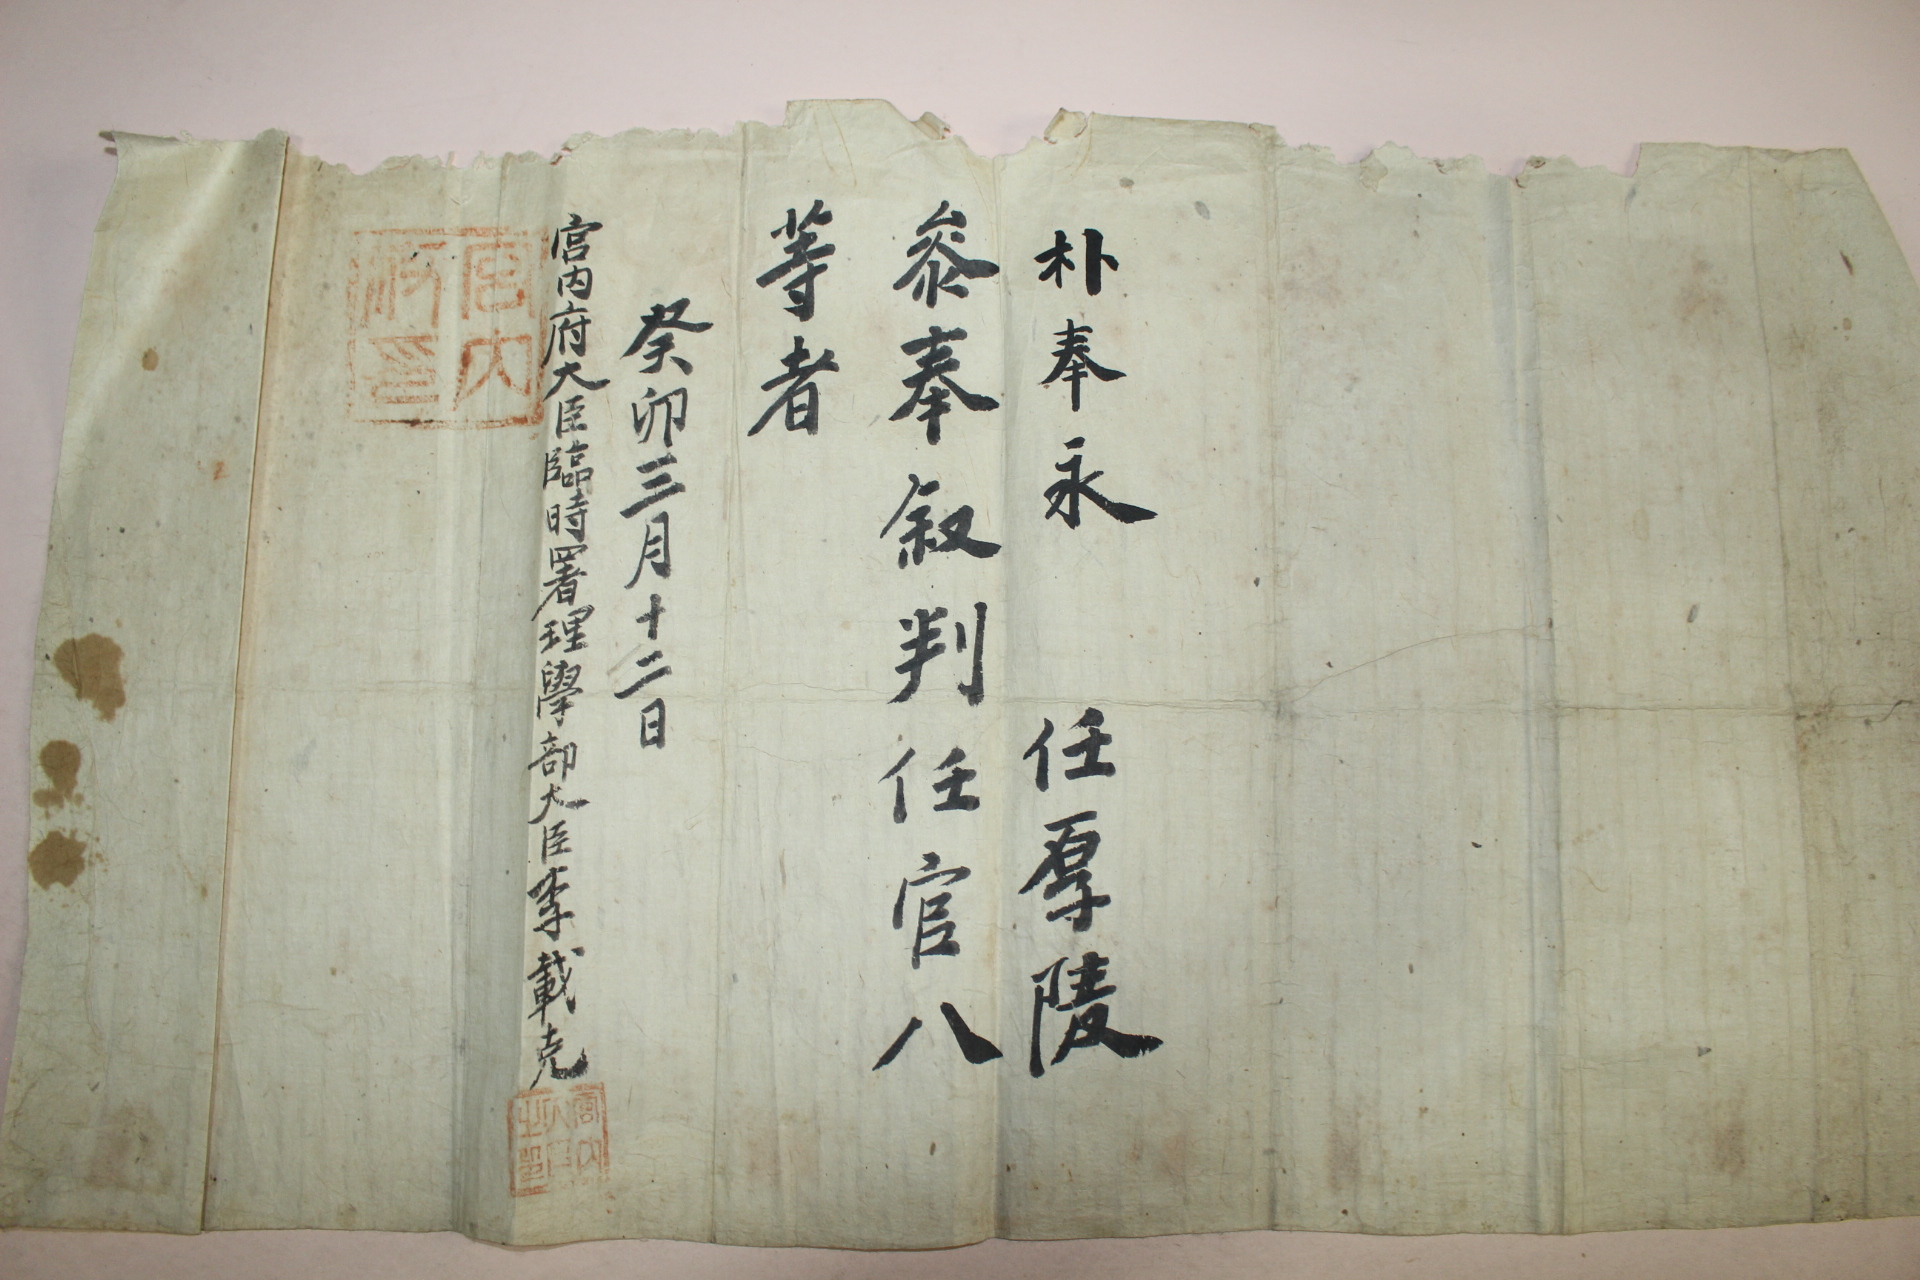 朴奉永 任厚陵
叅奉叙判任官八
等者
癸卯三月十二日
宮内府大臣臨時署理學部大臣李載克
宮内府印
宮内大臣之印